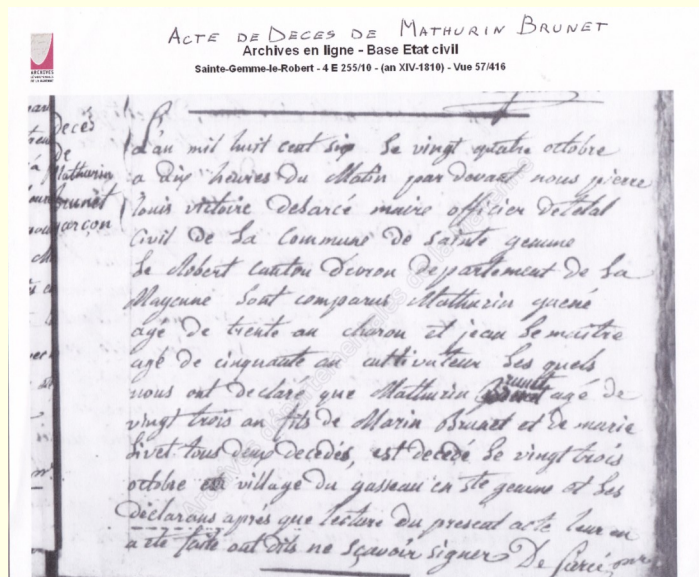 ACTE DE DECES DE MATHURIN BRUNET
Archives en ligne - Base Etat civil
Sainte-Gemme-le-Robert - 4 E 255/10 - (an XIV-1810) - Vue 57/416
ARCHIVES
Decés
de
Mathurin
Brunet
garçon
L'an mil huit cent six le vingt quatre octobre
a dix heures du Matin par devant nous pierre
louis victoire desarcé maire officier de letat
Civil de la Commune de Sainte gemme
le Robert canton devron departement de la
Mayenne sont comparus Mathurin guené
agé de trente an charon et jean le maitre
agé de cinquante an cultivateur les quels
nous ont declaré que Mathurin Brunet agé de
vingt trois an fils de Marin Brunet et de marie
Livet tous deux decedés, est decedé le vingt trois
octobre au village du gasseau en ste gemme et les
declarans aprés que lecture du present acte leur en
a été faite ont dits ne sçavoir signer